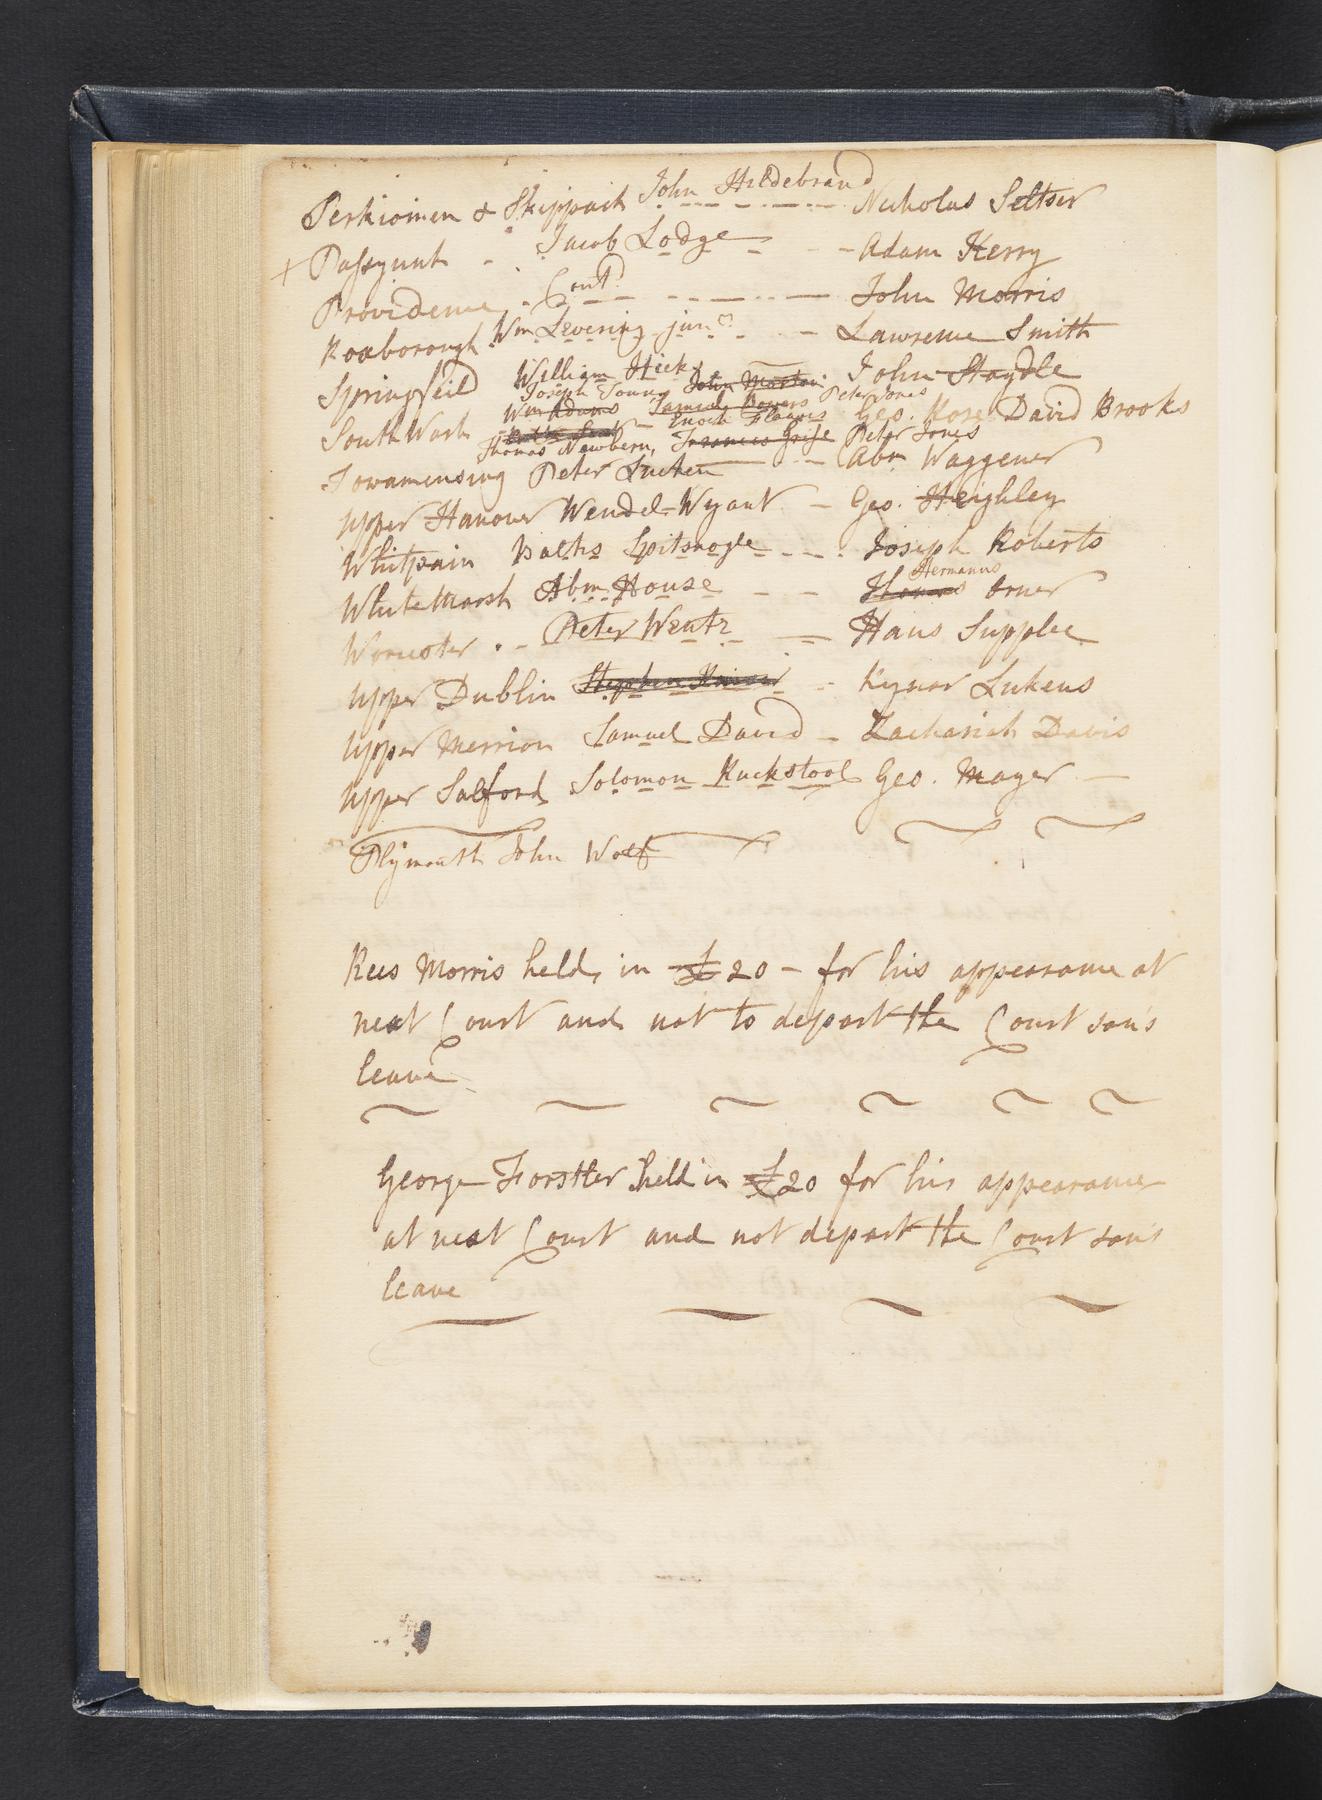 Perkiomen & Skippack John Hildebrand Nicholas Seltser
+ Passyunk - Jacob Lodge - - Adam Kerry
Providence - Cont.d - - - John Morris
Roxborough Wm Levering junr - - Lawrence Smith
Springfeild William Hicks John Staydle
Joseph Young John Martin Peter Jones
SouthWark Wm Adams Samuel Bowers Geo. Kore David Brooks
Enoch Flowers
Thomas Newbern, Peter Jones
Towamensing Peter Lucken - - Abm Waggener
Upper Hanover Wendel Wyant - Geo. Heighley
Whitpain Baltis Spitsnogle - - - Joseph Roberts
Hermanus
WhiteMarsh Abm House - - Orner
Worcester - - Peter Wentz - Hans Supplee
Upper Dublin - Rynar Lukens
Upper Merrion Samuel David - Zachariah Davis
Upper Salford Solomon Ruckstool Geo. Mayer -
Plymouth John Wolf
Rees Morris held in £20 - for his appearance at
next Court and not to depart the Court sans
leave
George Forstter held in £20 for his appearance
at next Court and not depart the Court sans
leave